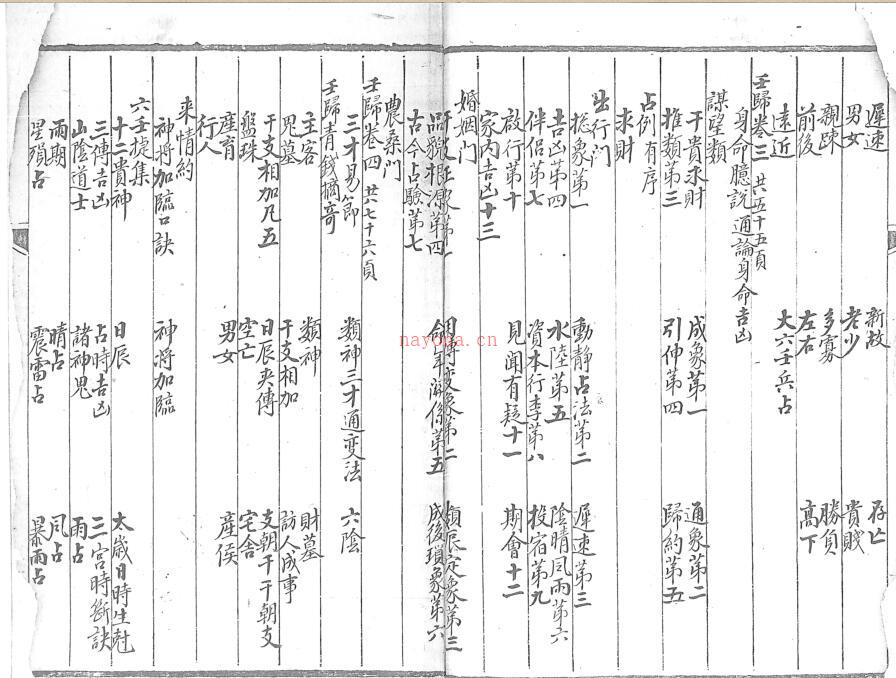 遲速 新故 存亡
男女 老少 貴賤
親疎 多寡 勝負
前後 左右 高下
遠近 大六壬兵占
壬歸卷三 共五十五頁
身命臆說通論身命吉凶
謀望類
干貴求財 成象第一 通象第二
推類第三 引伸第四 歸約第五
占例有序
求財
出行门
总象第一 動靜占法第二 遲速第三
吉凶第四 水陸第五 陰晴風雨第六
伴侣第七 資本行李第八 投宿第九
啟行第十 見聞有疑十一 期會十二
家内吉凶十三
婚姻门
第一 傳变象第二 類辰定象第三
根源第四 第五 成後瑣象第六
古今占驗第七
農桑门
壬歸卷四 共六七十六頁
三才易節 類神三才通变法 六陰
壬歸青錢摘奇
主客 類神 財墓
鬼墓 干支相加 訪人成事
干支相加凡五 日辰夾傳 支朝干干朝支
盤珠 空亡 宅舍
産育 男女 産侯
行人
来情約
神將加臨口訣 神將加臨
六壬捷集
十二貴神 日辰 太歲日時生尅
三傳吉凶 占時吉凶 三宫時斷訣
山陰道士 諸神鬼 雨占
雨期 晴占 風占
星殞占 震雷占 暴雨占
nayona.cn